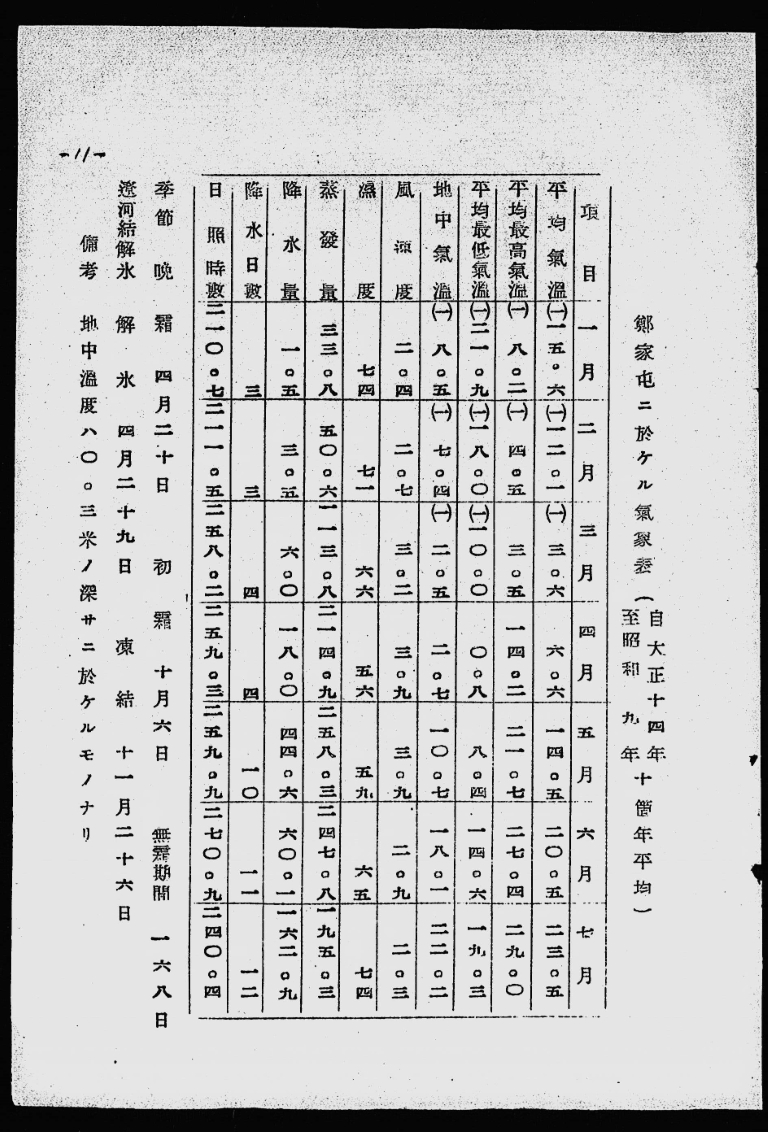 鄭家屯ニ於ケル氣象表(自大正十四年至昭和九年十箇年平均)
項目 一月 二月 三月 四月 五月 六月 七月
平均氣溫 (一)一五。六 (一)一二。一 (一)三。六 六。六 一四。五 二〇。五 二三。五
平均最高氣溫 (一)八。二 (一)四。五 三。五 一四。二 二一。七 二七。四 二九。〇
平均最低氣溫 (一)二一。九 (一)一八。〇 (一)一〇。〇 〇。八 八。四 一四。六 一九。三
地中氣溫 (一)八。五 (一)七。四 (一)二。五 二。七 一〇。七 一八。一 二二。二
風速度 二。四 二。七 三。二 三。九 三。九 二。九 二。三
濕度 七四 七一 六六 五六 五九 六五 七四
蒸發量 三三。八 五〇。六 一一三。八 二一四。九 二五八。三 二四七。八 一九五。三
降水量 一。五 三。五 六。〇 一八。〇 四四。六 六〇。一 一六二。九
降水日數 三 三 四 四 一〇 一一 一二
日照時數 二一〇。七 二一一。五 二五八。二 二五九。三 二五九。九 二七〇。九 二四〇。四
季節 晩霜 四月二十日 初霜 十月六日 無霜期間 一六八日
遼河結解氷 解氷 四月二十九日 凍結 十一月二十六日
備考 地中溫度ハ〇。三米ノ深サニ於ケルモノナリ
-11-